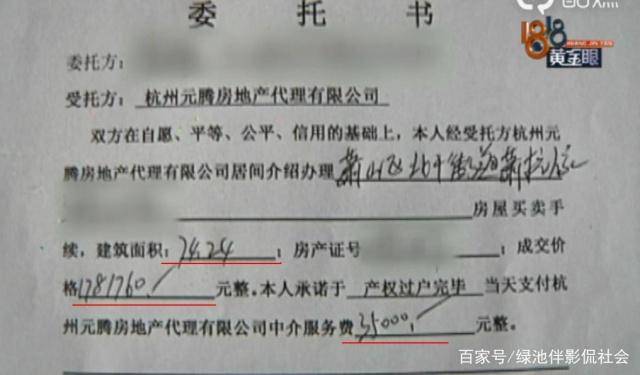 委托书
1818
黄金眼
委托方：
受托方：杭州元腾房地产代理有限公司
双方在自愿、平等、公平、信用的基础上，本人经受托方杭州元
腾房地产代理有限公司居间介绍办理萧山区北干街道萧杭
房屋买卖手
续，建筑面积：74.24；房产证号；成交价
格1781760元整。本人承诺于产权过户完毕当天支付杭
州元腾房地产代理有限公司中介服务费35000元整。
百家号/绿池伴影侃社会